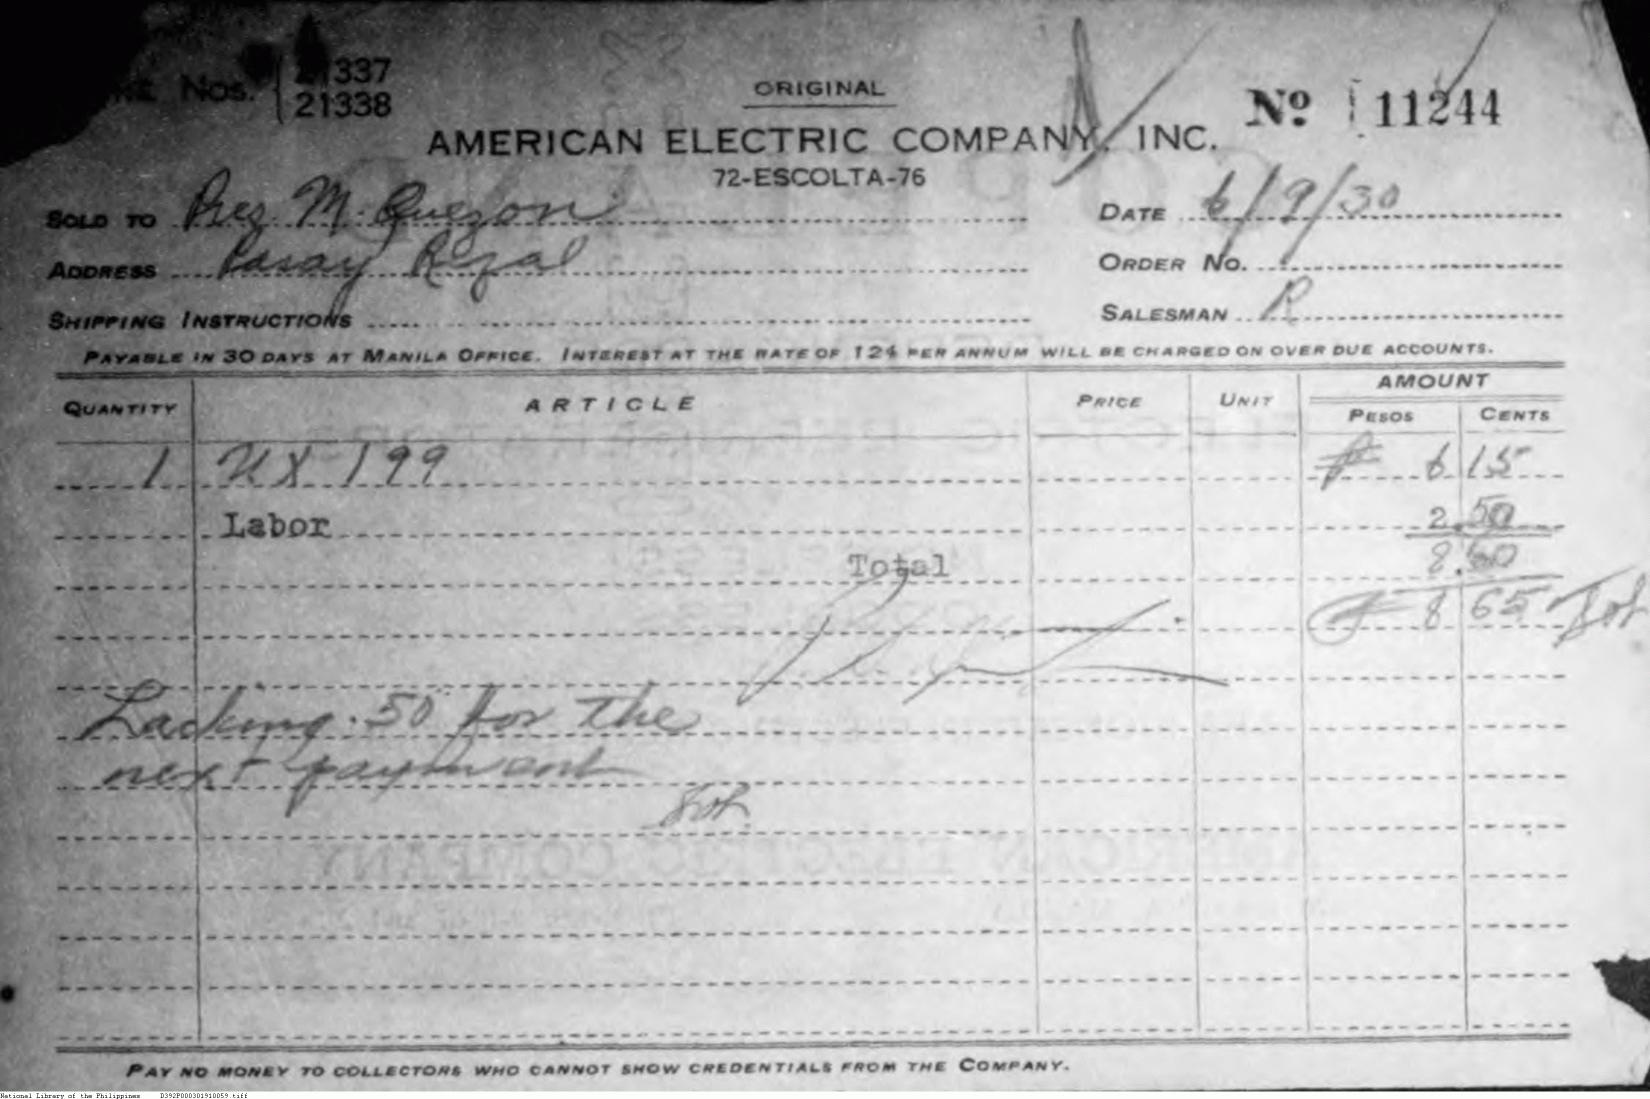 Nos. 21337
21338
ORIGINAL
Nº 11244
AMERICAN ELECTRIC COMPANY, INC.
72-ESCOLTA-76
SOLD TO Pres. M. Quezon
DATE 6/9/30
ADDRESS Pasay Rizal
ORDER NO.
SHIPPING INSTRUCTIONS
SALESMAN R
PAYABLE IN 30 DAYS AT MANILA OFFICE. INTEREST AT THE RATE OF 12% PER ANNUM WILL BE CHARGED ON OVER DUE ACCOUNTS.
QUANTITY ARTICLE PRICE UNIT AMOUNT
PESOS CENTS
1 UX 199 ₱ 6 15
Labor 2.50
Total 8.
₱ 8 65
Lacking .50 for the
next payment
PAY NO MONEY TO COLLECTORS WHO CANNOT SHOW CREDENTIALS FROM THE COMPANY.
National Library of the Philippines D392P000301910059.tiff